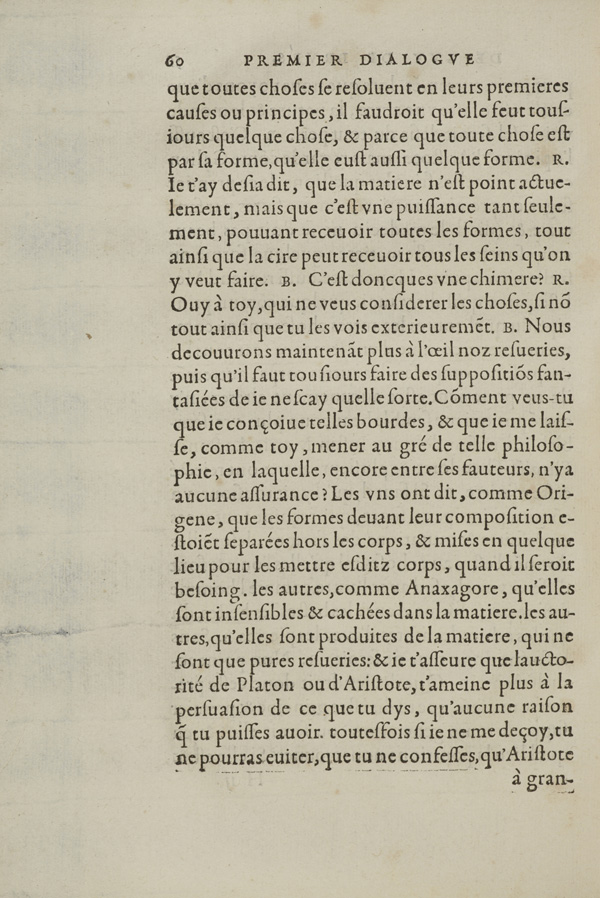 60 PREMIER DIALOGVE
que toutes choſes ſe reſoluent en leurs premieres
cauſes ou principes, il faudroit qu'elle feut touſ-
iours quelque choſe, & parce que toute choſe eſt
par ſa forme, qu'elle euſt auſſi quelque forme. R.
Ie t'ay deſia dit, que la matiere n'eſt point actue-
lement, mais que c'eſt vne puiſſance tant ſeule-
ment, pouuant receuoir toutes les formes, tout
ainſi que la cire peut receuoir tous les ſeins qu'on
y veut faire. B. C'eſt doncques vne chimere? R.
Ouy à toy, qui ne veus conſiderer les choſes, ſi nõ
tout ainſi que tu les vois exterieuremẽt. B. Nous
decouurons maintenãt plus à l'œil noz reſueries,
puis qu'il faut touſiours faire des ſuppoſitiõs fan-
taſiées de ie ne ſcay quelle ſorte. Cõment veus-tu
que ie conçoiue telles bourdes, & que ie me laiſ-
ſe, comme toy, mener au gré de telle philoſo-
phie, en laquelle, encore entre ſes fauteurs, n'ya
aucune aſſurance? Les vns ont dit, comme Ori-
gene, que les formes deuant leur compoſition e-
ſtoiẽt ſeparées hors les corps, & miſes en quelque
lieu pour les mettre eſditz corps, quand il ſeroit
beſoing. les autres, comme Anaxagore, qu'elles
ſont inſenſibles & cachées dans la matiere. les au-
tres, qu'elles ſont produites de la matiere, qui ne
ſont que pures reſueries: & ie t'aſſeure que laucto-
rité de Platon ou d'Ariſtote, t'ameine plus à la
perſuaſion de ce que tu dys, qu'aucune raiſon
q̃ tu puiſſes auoir. touteſfois ſi ie ne me deçoy, tu
ne pourras euiter, que tu ne confeſſes, qu'Ariſtote
à gran-